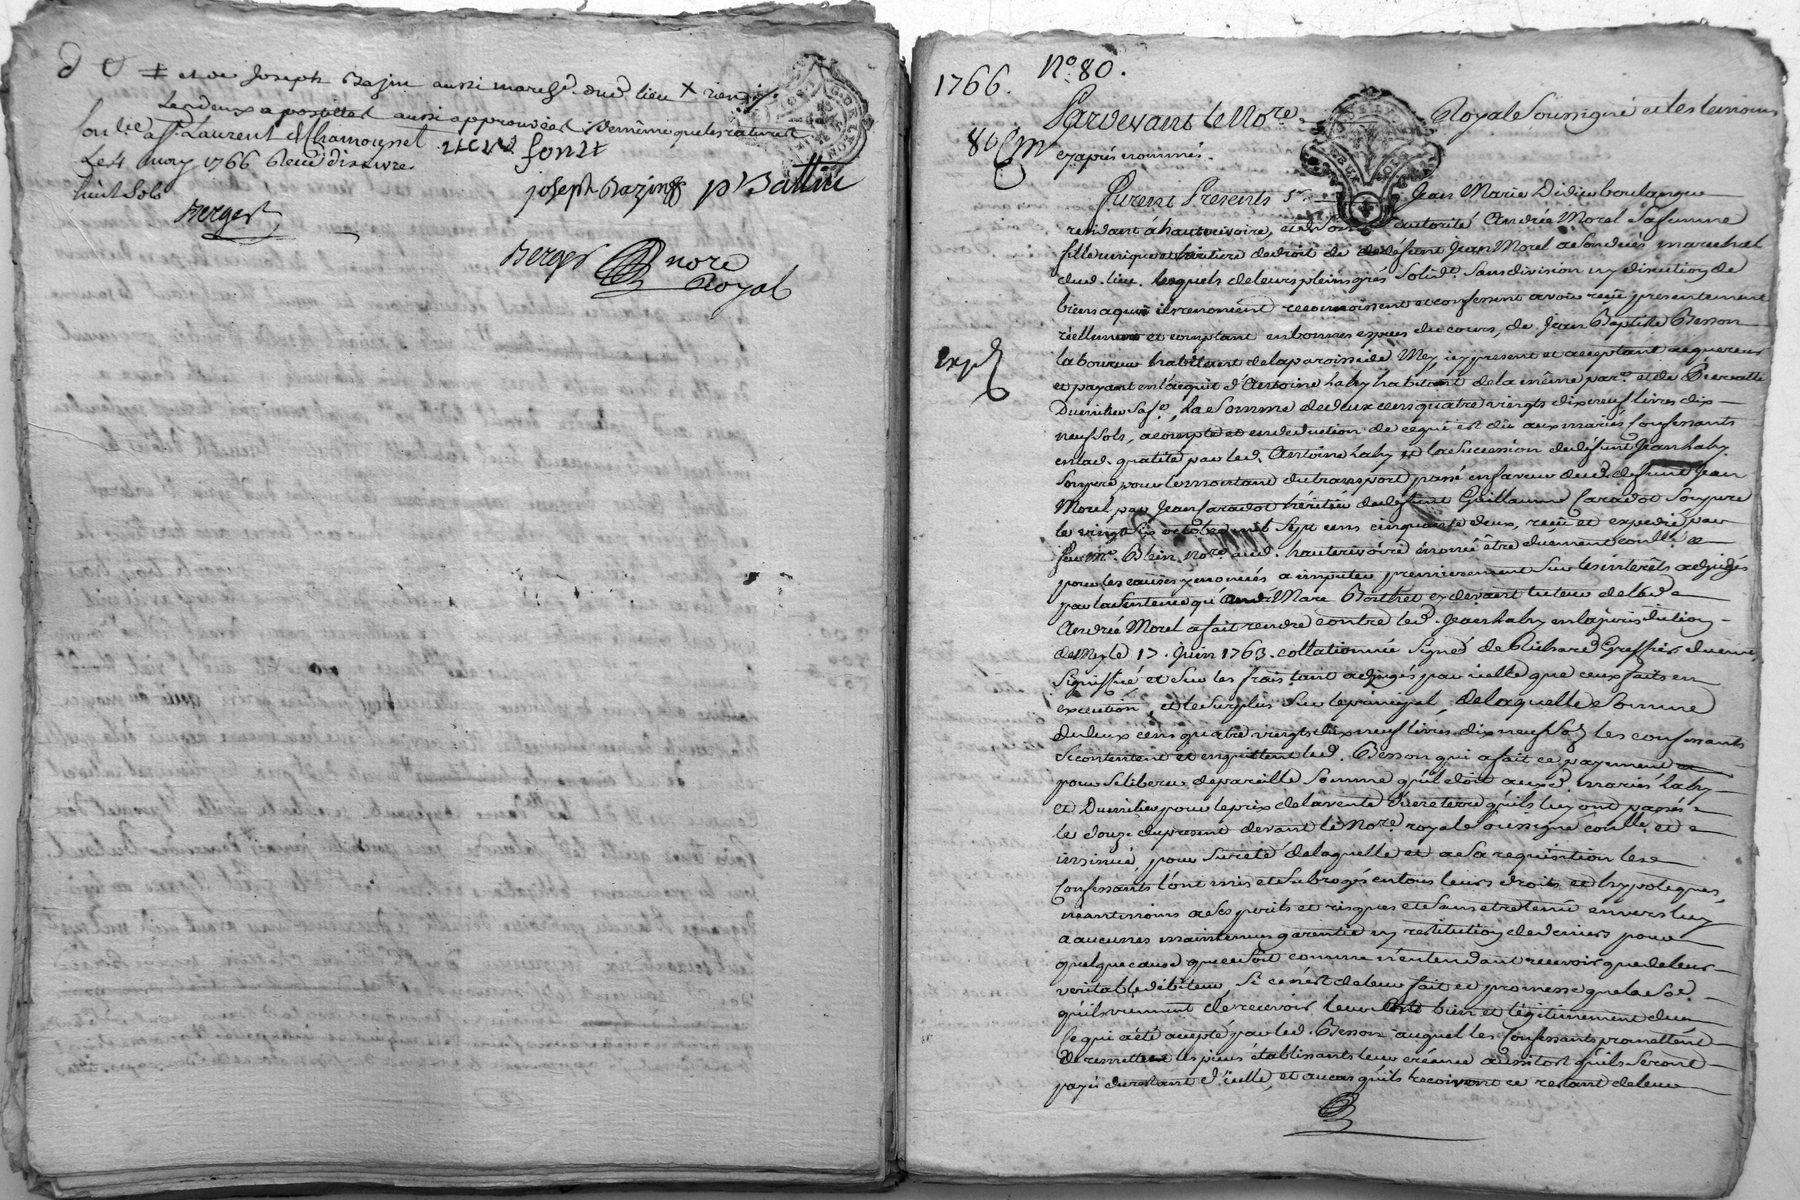 et de Joseph Razin aussi march.d dud. lieu X rien
Les deux apostilles aussi approuvées de même que les ratures
Laurent Chamousset
Le 4 may 1766 Reçu dix livres
huit sols
Berger
fonze
joseph Razin p. Battin
Berger nore
Royal
1766. No. 80.
Pardevant le Nore. Royale Soussigné et les temoins
80 Cm
cy après nommés.
Furent Presents Sr. Jean Marie Didier boulanger
residant à hauterivoire, et de son autorité Andrée Morel sa femme
fille unique et heritiere de droit de defunt Jean Morel marechal
dud. lieu. lesquels de leurs pleins grés Solid.t Sans division ny discution de
biens a quoi ils renoncent reconnoissent et confessent avoir reçu presentement
réellement et comptant en bonnes especes du cours, de Jean Baptiste Besson
laboureur habitant de la paroisse de Mey, icy present et acceptant acquereur
Exp.d
et payant en l'acquit d'Antoine Laby habitant de la même par.e et de Pierrette
Dumilieu Sa fe., la Somme de deux cens quatre vingts dix neuf livres dix
neuf Sols, acompte et en deduction de ce qui est dû aux mariés Confessants
en lad. qualité par led. Antoine Laby et la succession de defunt Jean Laby
Son pere pour le montant du transport passé en faveur dud. defunt Jean
Morel par Jean Caradot héritier de defunt Guillaume Caradot Son pere
le vingt six octobre mil Sept cens cinquante deux, reçu et expedié par
feu Me. Blein Nore. aud. hauterivoire énoncé être duement conllé. et
pour les causes y enoncés a imputer premierement Sur les interêts adjugés
par la Sentence qu' Marc Berthet cy devant tuteur de lad.e
Andrée Morel a fait rendre contre led. Jean Laby en la jurisdiction
de Mey le 17. Juin 1763. collationnée Signé de Richard Greffier duement
Signiffiée et Sur les frais tant adjugés par icelle que ceux faits en
execution, et le Surplus Sur le principal, de laquelle Somme
de deux cens quatre vingts dix neuf livres dix neuf Sols les confessants
Se contentent et en quittent led. Besson qui a fait ce payement
pour Se liberer de pareille Somme qu'il doit auxd. mariés Laby
et Dumilieu pour le prix de la vente d'une terre qu'ils luy ont passés
le douze du present devant le Nore. royale soussigné conllé. et
insinué, pour Sureté de laquelle et a Sa requisition les
Confessants l'ont mis et subrogés en tous leurs droits et hypoteques,
neantmoins a Ses perils et risques et Sans etre tenû envers luy
a aucunes maintenues garentie ny restitution de deniers pour
quelque cause que ce Soit comme n'entendant recevoir que de leur
veritable debiteur, Si ce n'est de leur fait et promesse que la Soe.
qu'ils viennent de recevoir leur bien et legitimement due
ce qui a été accepté par led. Besson auquel les Confessants promettent
de remettre les pieces établissants leur créance aussitost qu'ils Seront
payés du restant d'icelle, et au cas qu'ils reçoivent ce restant de leur